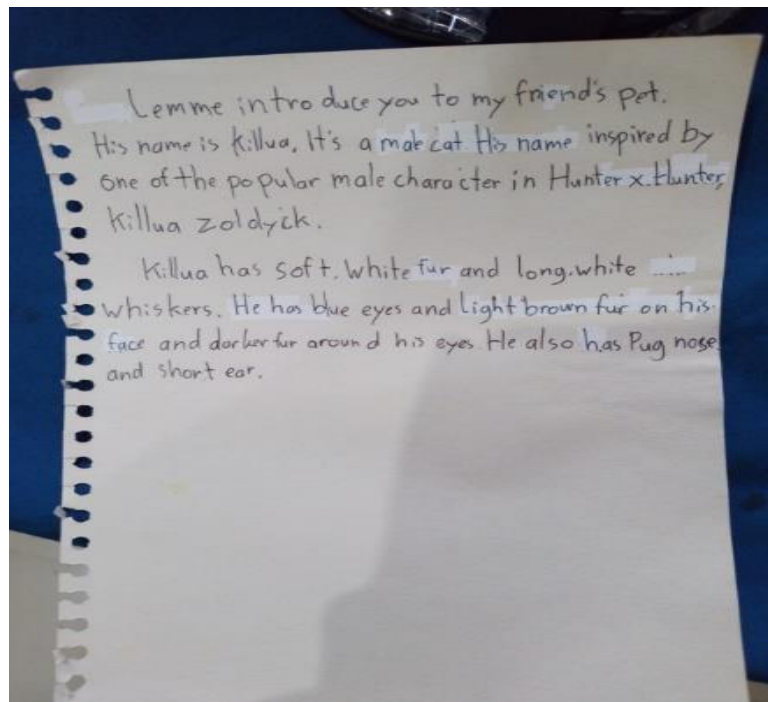 Lemme introduce you to my friend's pet.
His name is Killua. It's a male cat His name inspired by
one of the popular male character in Hunter x Hunter,
Killua zoldyck.
Killua has soft. White fur and long.white
whiskers. He has blue eyes and Light brown fur on his.
face and darker fur around his eyes. He also has Pug nose
and short ear.